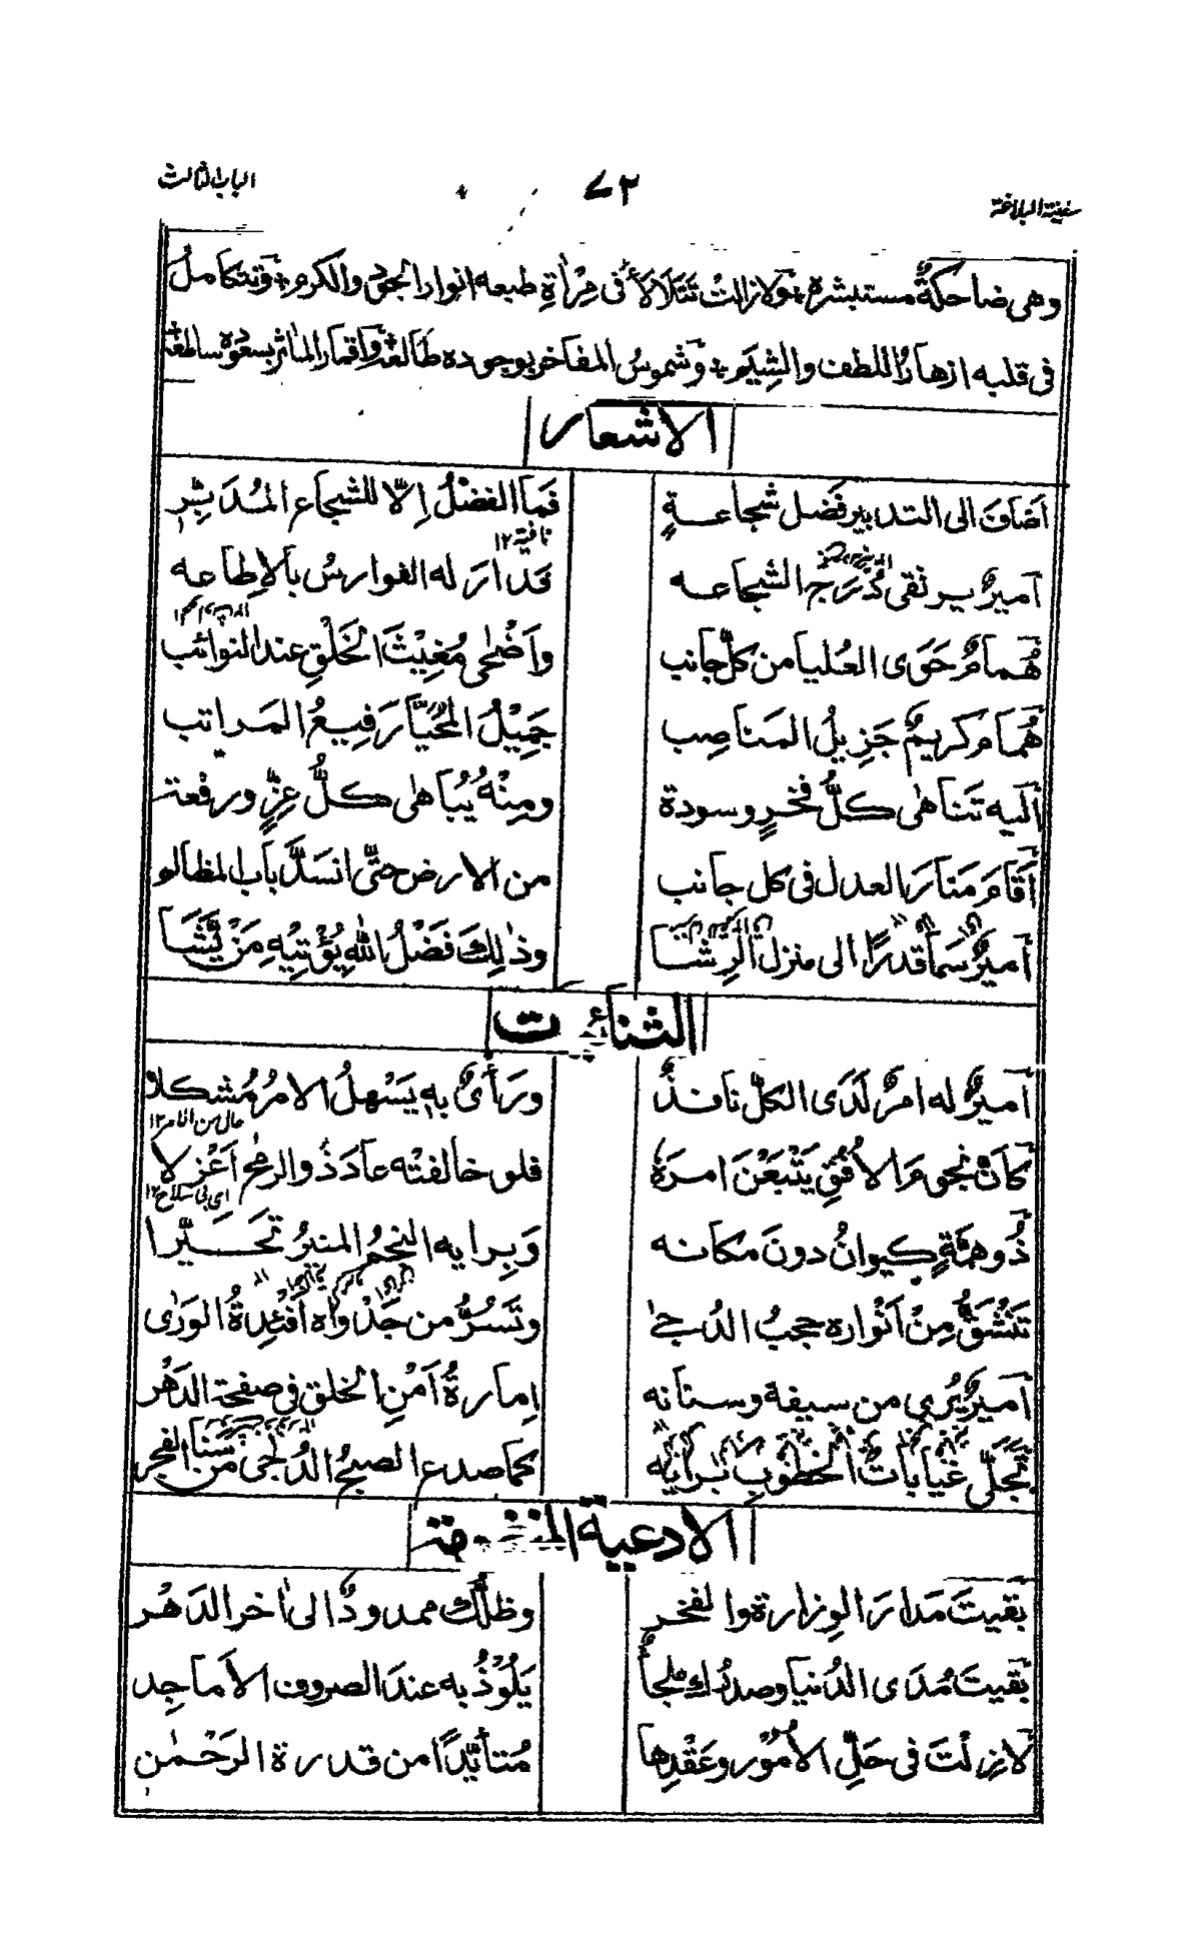 سفينة البلاغة ٧٢ الباب الثالث
وهى ضاحكةٌ مستبشره ولازالت تتلألأ فى مرأة طبعه انوار الجود والكرم وتتكامل
فى قلبه ازهار اللطف والشيم وشموس المفاخر بوجوده طالعة واقمار الماثر بسعوده ساطعة
الاشعار
اضاف الى التدبير فضل شجاعةٍ فما الفضلُ اِلّا للشجاع المُدبّر
نافية ١٢
اميرٌ يرتقى دُرَج الشجاعه قدار له الفوارسُ بالاِطاعه
هُمامٌ حَوَى العُليا من كلّ جانب واَضْحٰى مُغِيْثَ الخَلْقِ عند النوائب
هُمام كريمٌ جَزِيلُ المَناصِب جَمِيْلُ المُحَيَّا رَفِيعُ المَراتب
اليه تَنَاهٰى كلُّ فخرٍ وسودة ومِنْهُ يُباهٰى كلُّ عِزٍّ ورفعة
اَقَامَ مَنَارَ العدل فى كل جانب من الارض حتّٰى انسَدَّ باب المظالم
اميرٌ سَمَا قدرًا الى منزل الرِشَا وذٰلِكَ فَضْلُ اللهِ يُؤْتِيْهِ مَنْ يَّشَا
الثنائيت
اميرٌ له امرٌ لَدَى الكلّ نافذٌ ورَأىٌ بهٖ يَسْهلُ الامرُ مُشكلا
حال من الامر ١٢
كأنّ نجومَ الاُفُقِ يَتْبَعْنَ امرَهٗ فلو خالفتْه عادَ ذُو الرمْح اَعْزلا
اى بى سلاح ١٢
ذُو همّةٍ كيوانُ دونَ مكانه وبِرايه النجمُ المنيرُ تَحَيَّرا
تَنْشَقُّ مِنْ اَنْواره حجبُ الدُجٰى وتَسُرُّ من جَدْواه اَفْئِدةُ الوَرٰى
اميرٌ يُرى من سيفه وسنانه اِمارةُ اَمْنِ الخلق فى صفحة الدَهْر
تُجَلّٰى غيابات الخطوبِ برايه كما صدع الصبحُ الدُجٰى من سنا الفجر
الادعية المتفرقة
بَقيتَ مَدارَ الوِزارة والفخر وظلُّك ممدودٌ الى اٰخر الدَهْر
بَقيتَ مُدَى الدُنيا وصدرُك ملجأٌ يَلُوْذُ به عندَ الصروف الاَماجِد
لازِلْتَ فى حَلِّ الاُمُوْر وعَقْدِها مُتأيّدًا من قدرة الرَحْمٰن